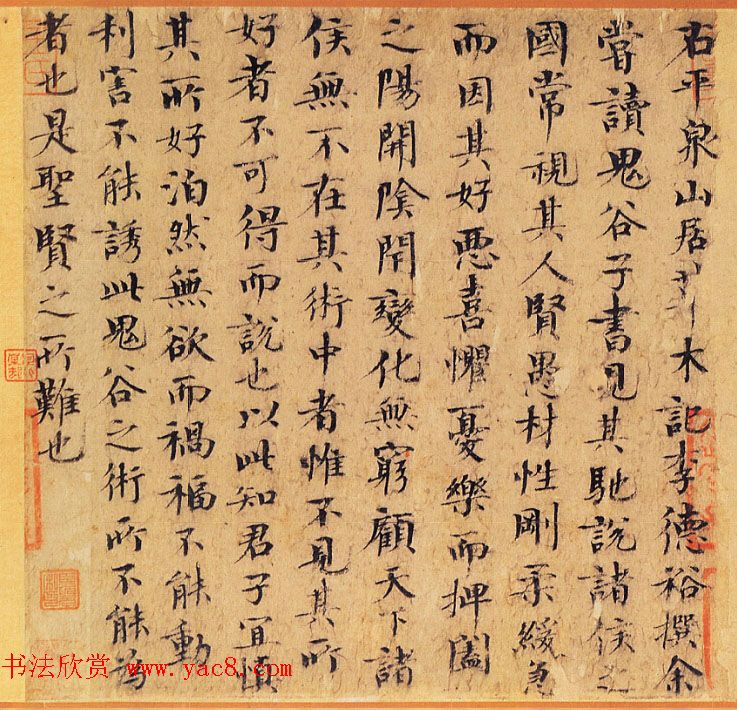 右平泉山居草木記李德裕撰余
嘗讀鬼谷子書見其馳說諸侯之
國常視其人賢愚材性剛柔緩急
而因其好惡喜懼憂樂而捭闔
之陽開陰閉變化無窮顧天下諸
侯無不在其術中者惟不見其所
好者不可得而說也以此知君子宜慎
其所好泊然無欲而禍福不能動
利害不能誘此鬼谷之術所不能為
者也是聖賢之所難也
书法欣赏 www.yac8.com